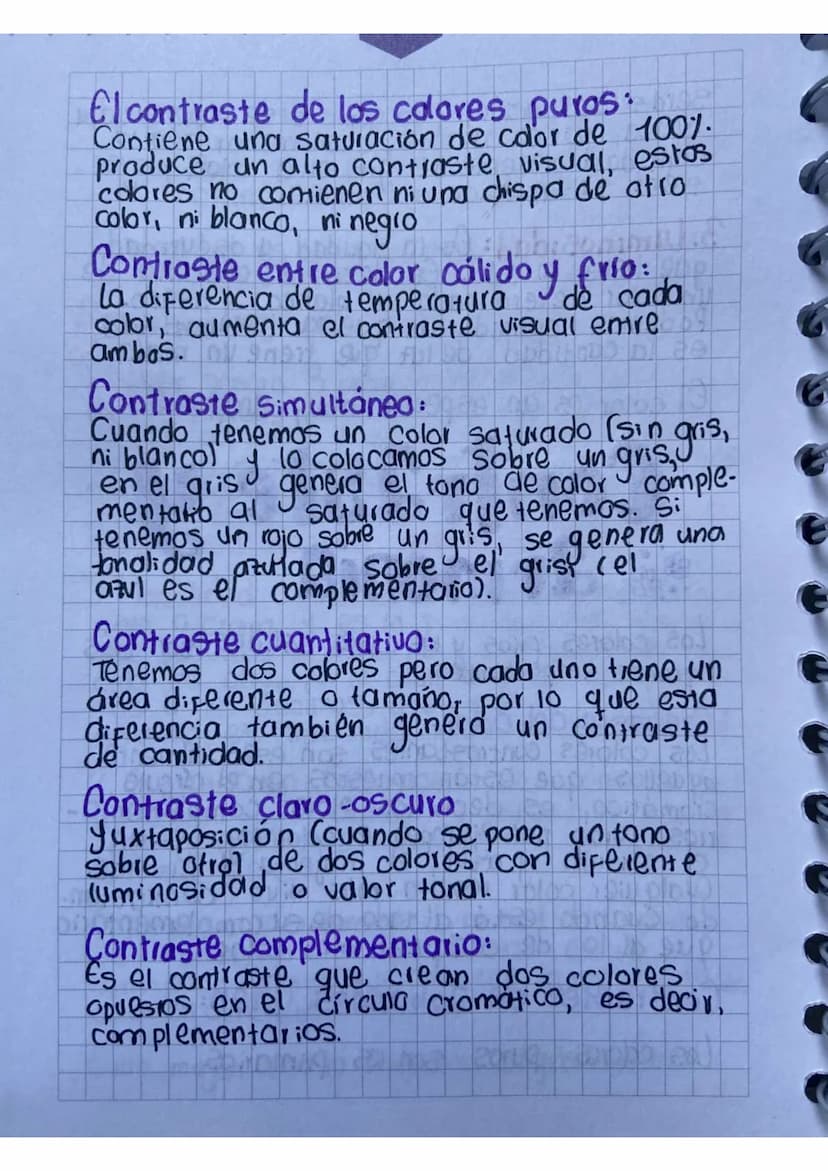 El contraste de los colores puros:
Contiene una saturación de color de 100%.
produce un alto contraste visual, estos
colores no contienen ni una chispa de otro
color, ni blanco, ni negro
Contraste entre color cálido y frío:
La diferencia de temperatura de cada
color, aumenta el contraste visual entre
ambos.
Contraste simultáneo:
Cuando tenemos un color saturado (sin gris,
ni blanco) y lo colocamos sobre un gris,
en el gris genera el tono de color comple-
mentario al saturado que tenemos. Si
tenemos un rojo sobre un gris, se genera una
tonalidad azulada sobre el gris (el
azul es el complementario).
Contraste cuantitativo:
Tenemos dos colores pero cada uno tiene un
área diferente o tamaño, por lo que esta
diferencia también genera un contraste
de cantidad.
Contraste claro-oscuro
Yuxtaposición (cuando se pone un tono
sobre otro) de dos colores con diferente
luminosidad o valor tonal.
Contraste complementario:
Es el contraste que crean dos colores
opuestos en el círculo cromático, es decir,
complementarios.